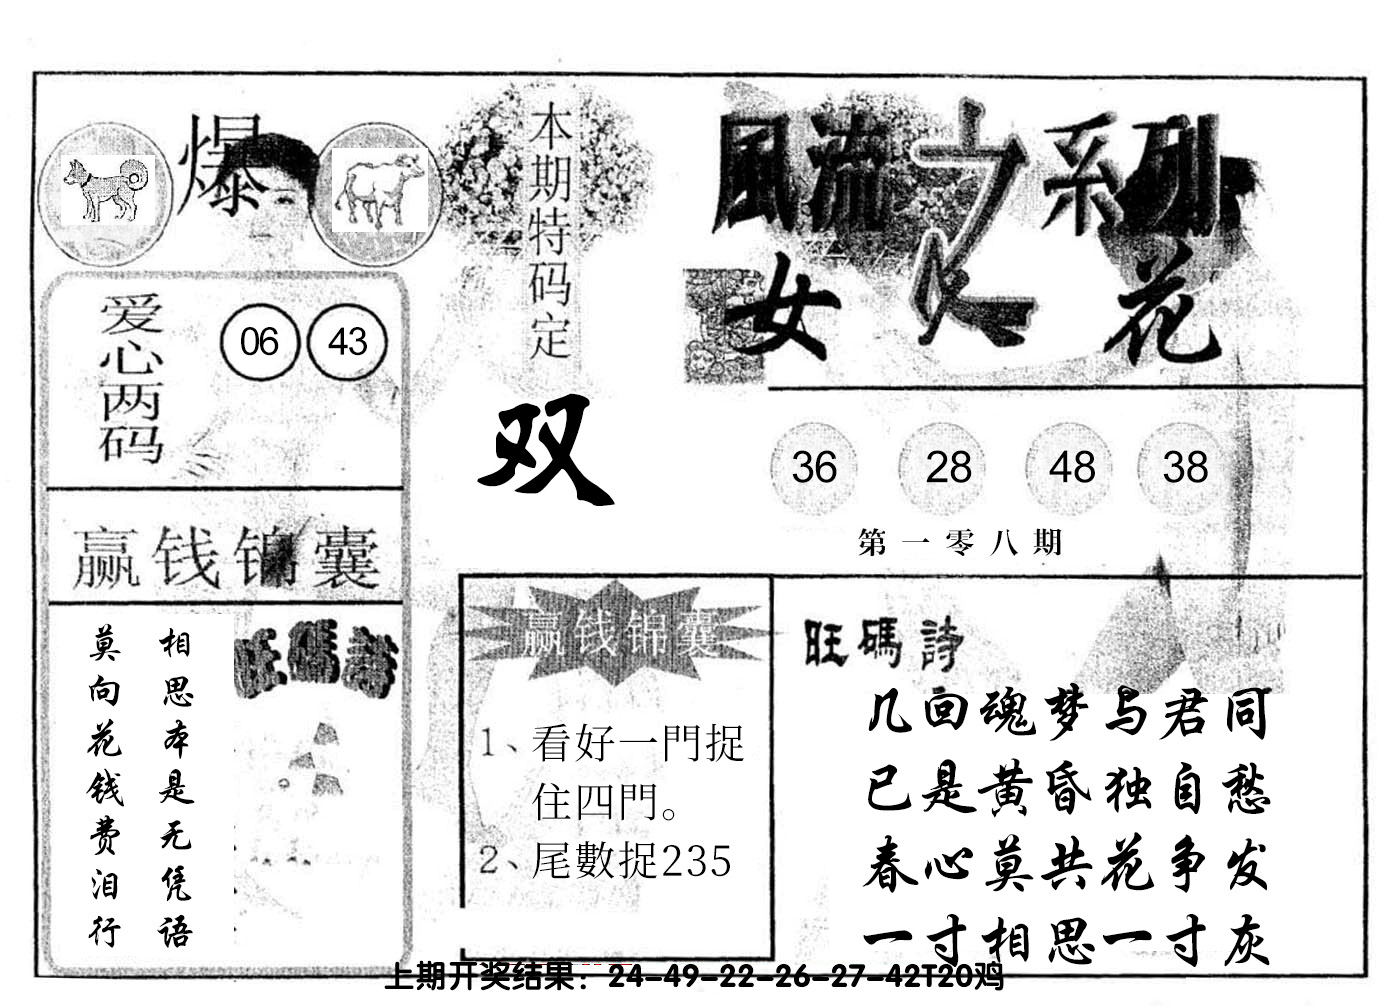 爆
本期特码定
双
風流之系列
女人花
爱心两码
06 43
36 28 48 38
第一零八期
赢钱锦囊
相思本是无凭语
莫向花钱费泪行
旺碼詩
赢钱锦囊
1、看好一門捉
住四門。
2、尾數捉235
旺碼詩
几回魂梦与君同
已是黄昏独自愁
春心莫共花争发
一寸相思一寸灰
上期开奖结果：24-49-22-26-27-42T20鸡